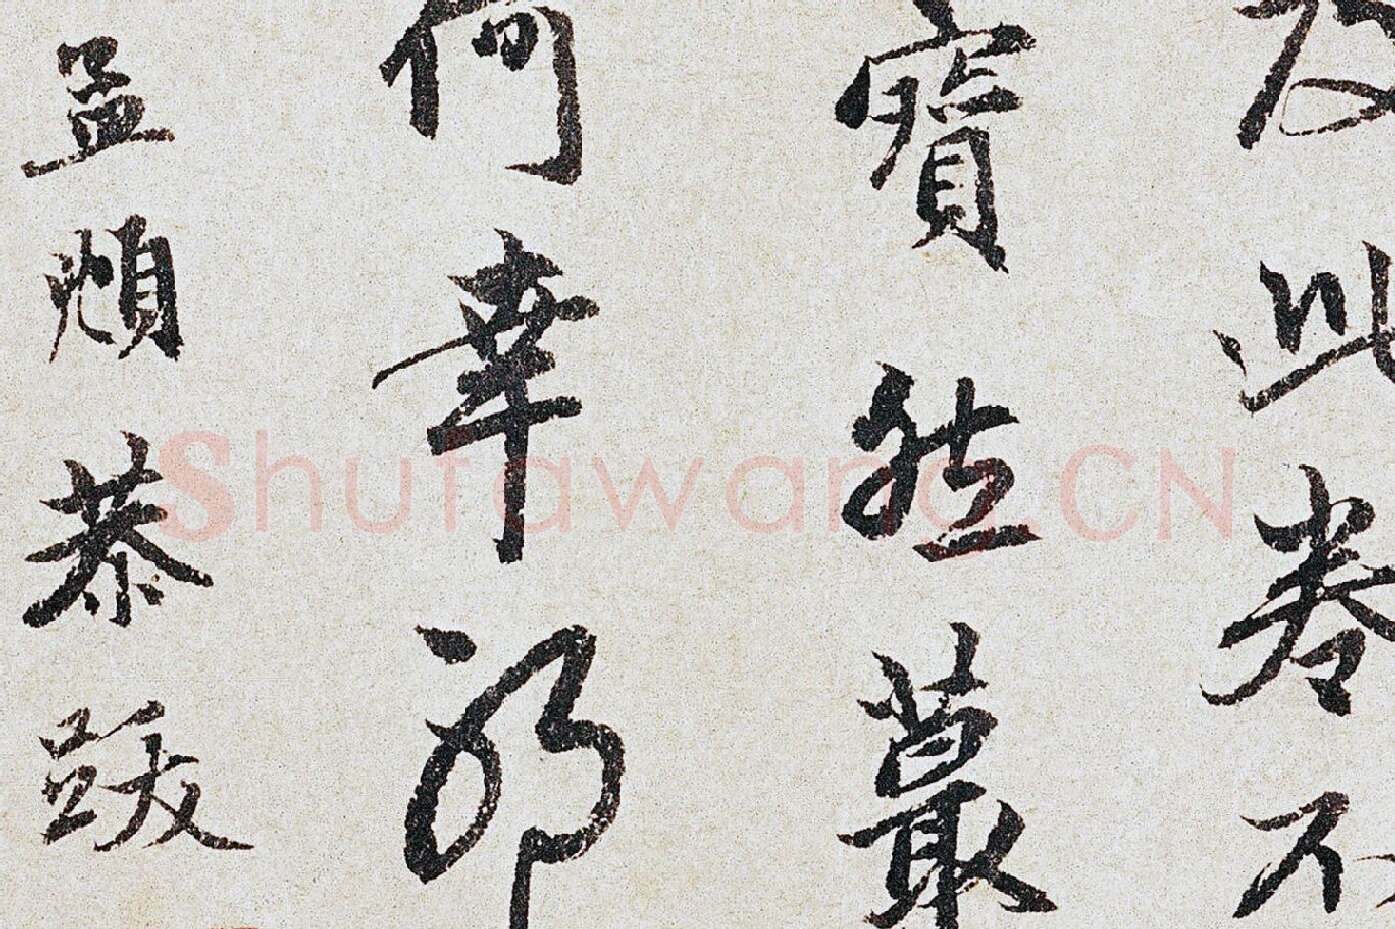 及此卷不
寶然叢
何幸耶
孟頫恭跋
Shufawang.CN